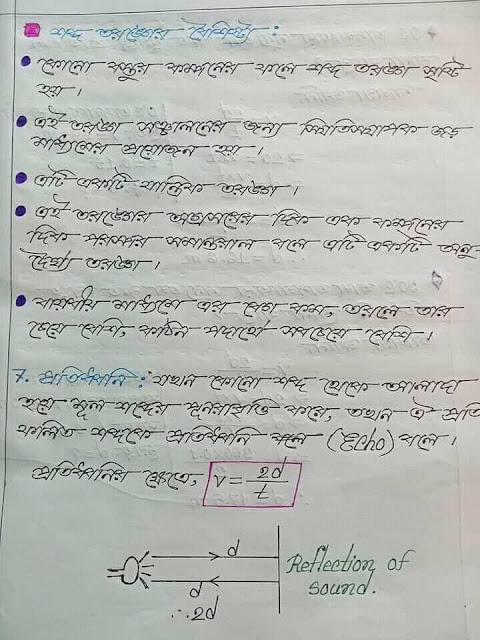 শব্দ তরঙ্গের বৈশিষ্ট্য :
কোনো বস্তুর কম্পনের ফলে শব্দ তরঙ্গ সৃষ্টি
হয় ।
এই তরঙ্গ সঞ্চালনের জন্য স্থিতিস্থাপক জড়
মাধ্যমের প্রয়োজন হয় ।
এটি একটি যান্ত্রিক তরঙ্গ ।
এই তরঙ্গের প্রবাহের দিক এবং কম্পনের
দিক পরস্পর সমান্তরাল বলে এটি একটি অনু-
দৈর্ঘ্য তরঙ্গ ।
বায়বীয় মাধ্যমে এর বেগ কম, তরলে তার
চেয়ে বেশি, কঠিন পদার্থে সবচেয়ে বেশি ।
7. প্রতিধ্বনি : যখন কোনো শব্দ থেকে আলাদা
হয়ে মূল শব্দের পুনরাবৃত্তি করে, তখন ঐ প্রতি
ফলিত শব্দকে প্রতিধ্বনি বলে (Echo) বলে ।
প্রতিধ্বনির ক্ষেত্রে, v = 2d/t
d
d
∴ 2d
Reflection of
sound.